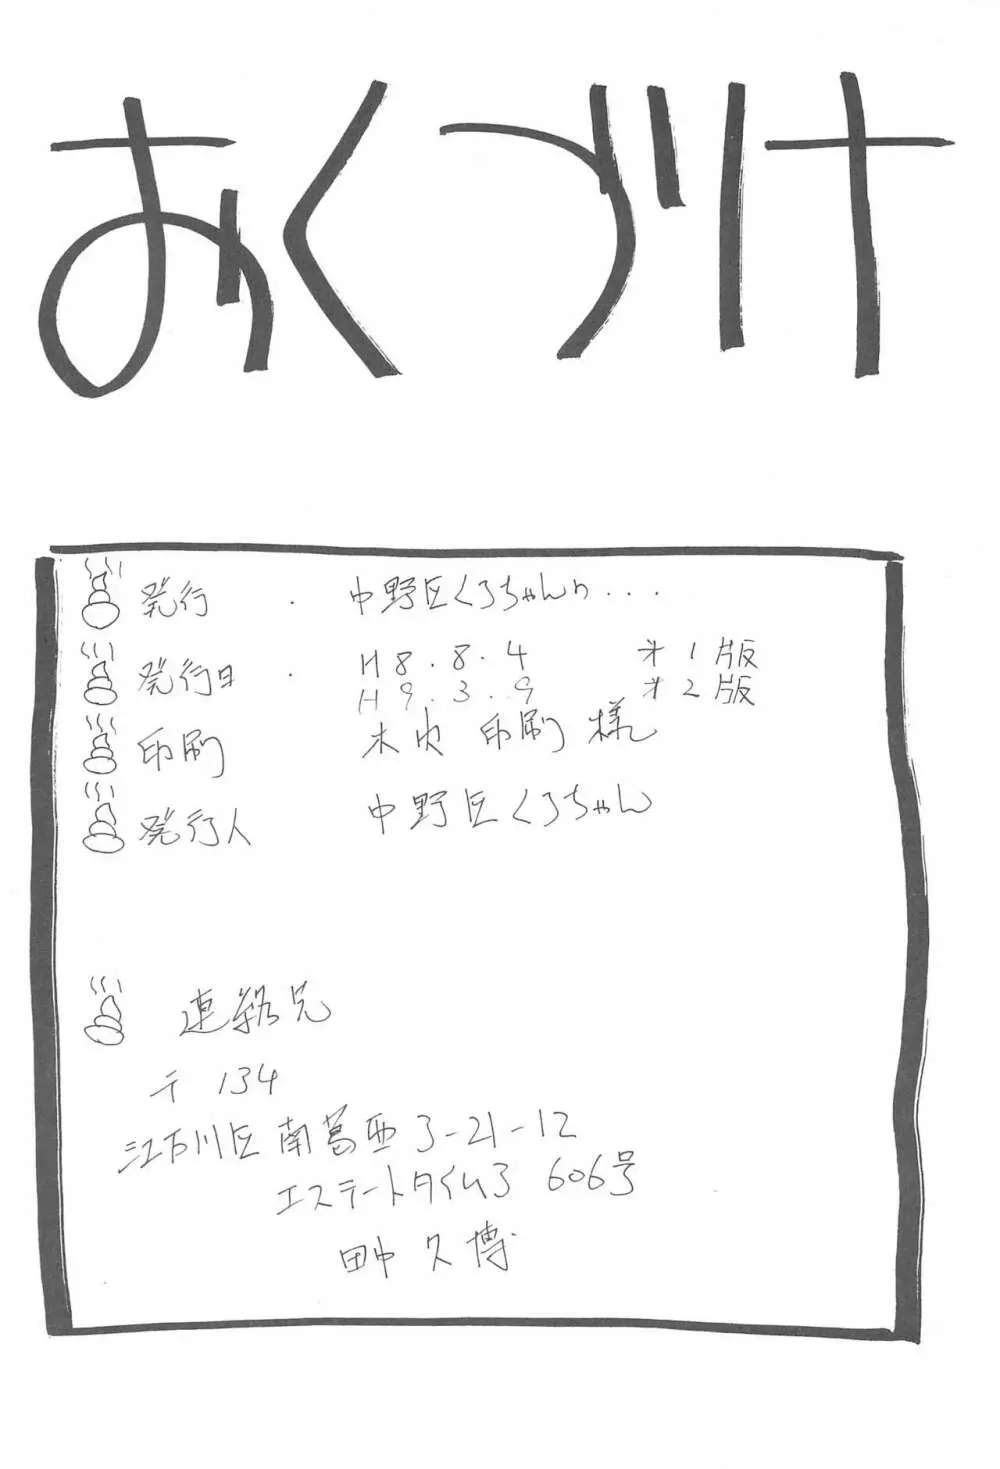 おくづけ
発行 . 中野区くろちゃんn...
発行日 . H8.8.4 才1版
H9.3.9 才2版
印刷 木内印刷様
発行人 中野区くろちゃん
連絡先
〒134
江戸川区南葛西3-21-12
エステートタイム3 606号
田中久博